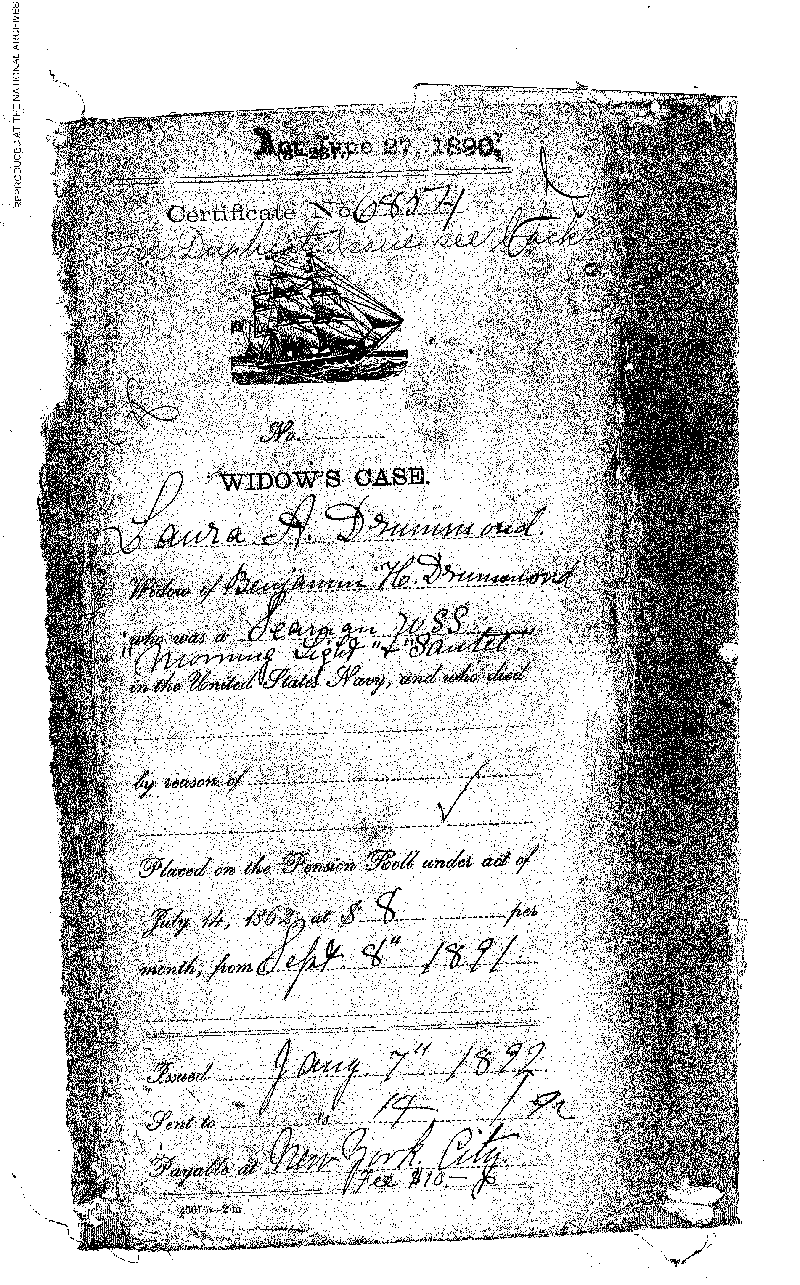 REPRODUCED AT THE NATIONAL ARCHIVES
Act June 27, 1890.
Certificate No 6854
Duplicate Issue see Jacket
No.
WIDOW'S CASE.
Laura A. Drummond.
Widow of Benjamin H. Drummond
who was a Seaman USS
"Morning Light" & "Sautee"
in the United States Navy, and who died
by reason of
Placed on the Pension Roll under act of
July 14, 1862, at $ 8 per
month, from Sept. 8" 1891
Issued Jany 7" 1892
Sent to " 14 / 92
Payable at New York City
Fee $10—